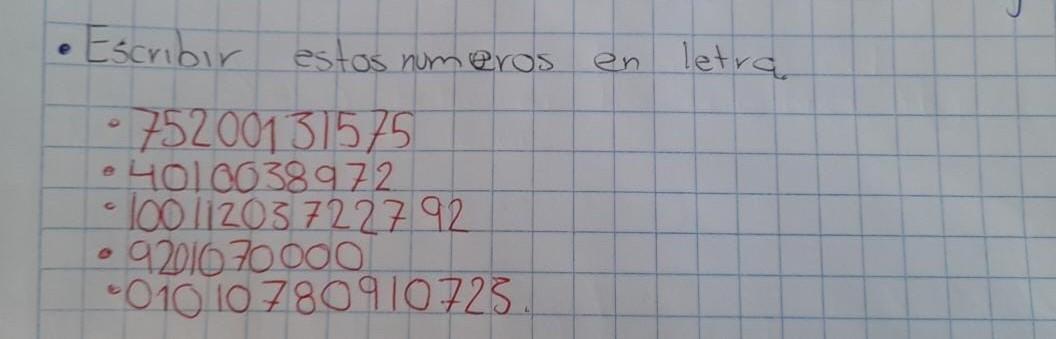 • Escribir estos numeros en letra
• 75200131575
• 4010038972
• 10011203722792
• 9201070000
• 01010780910725.